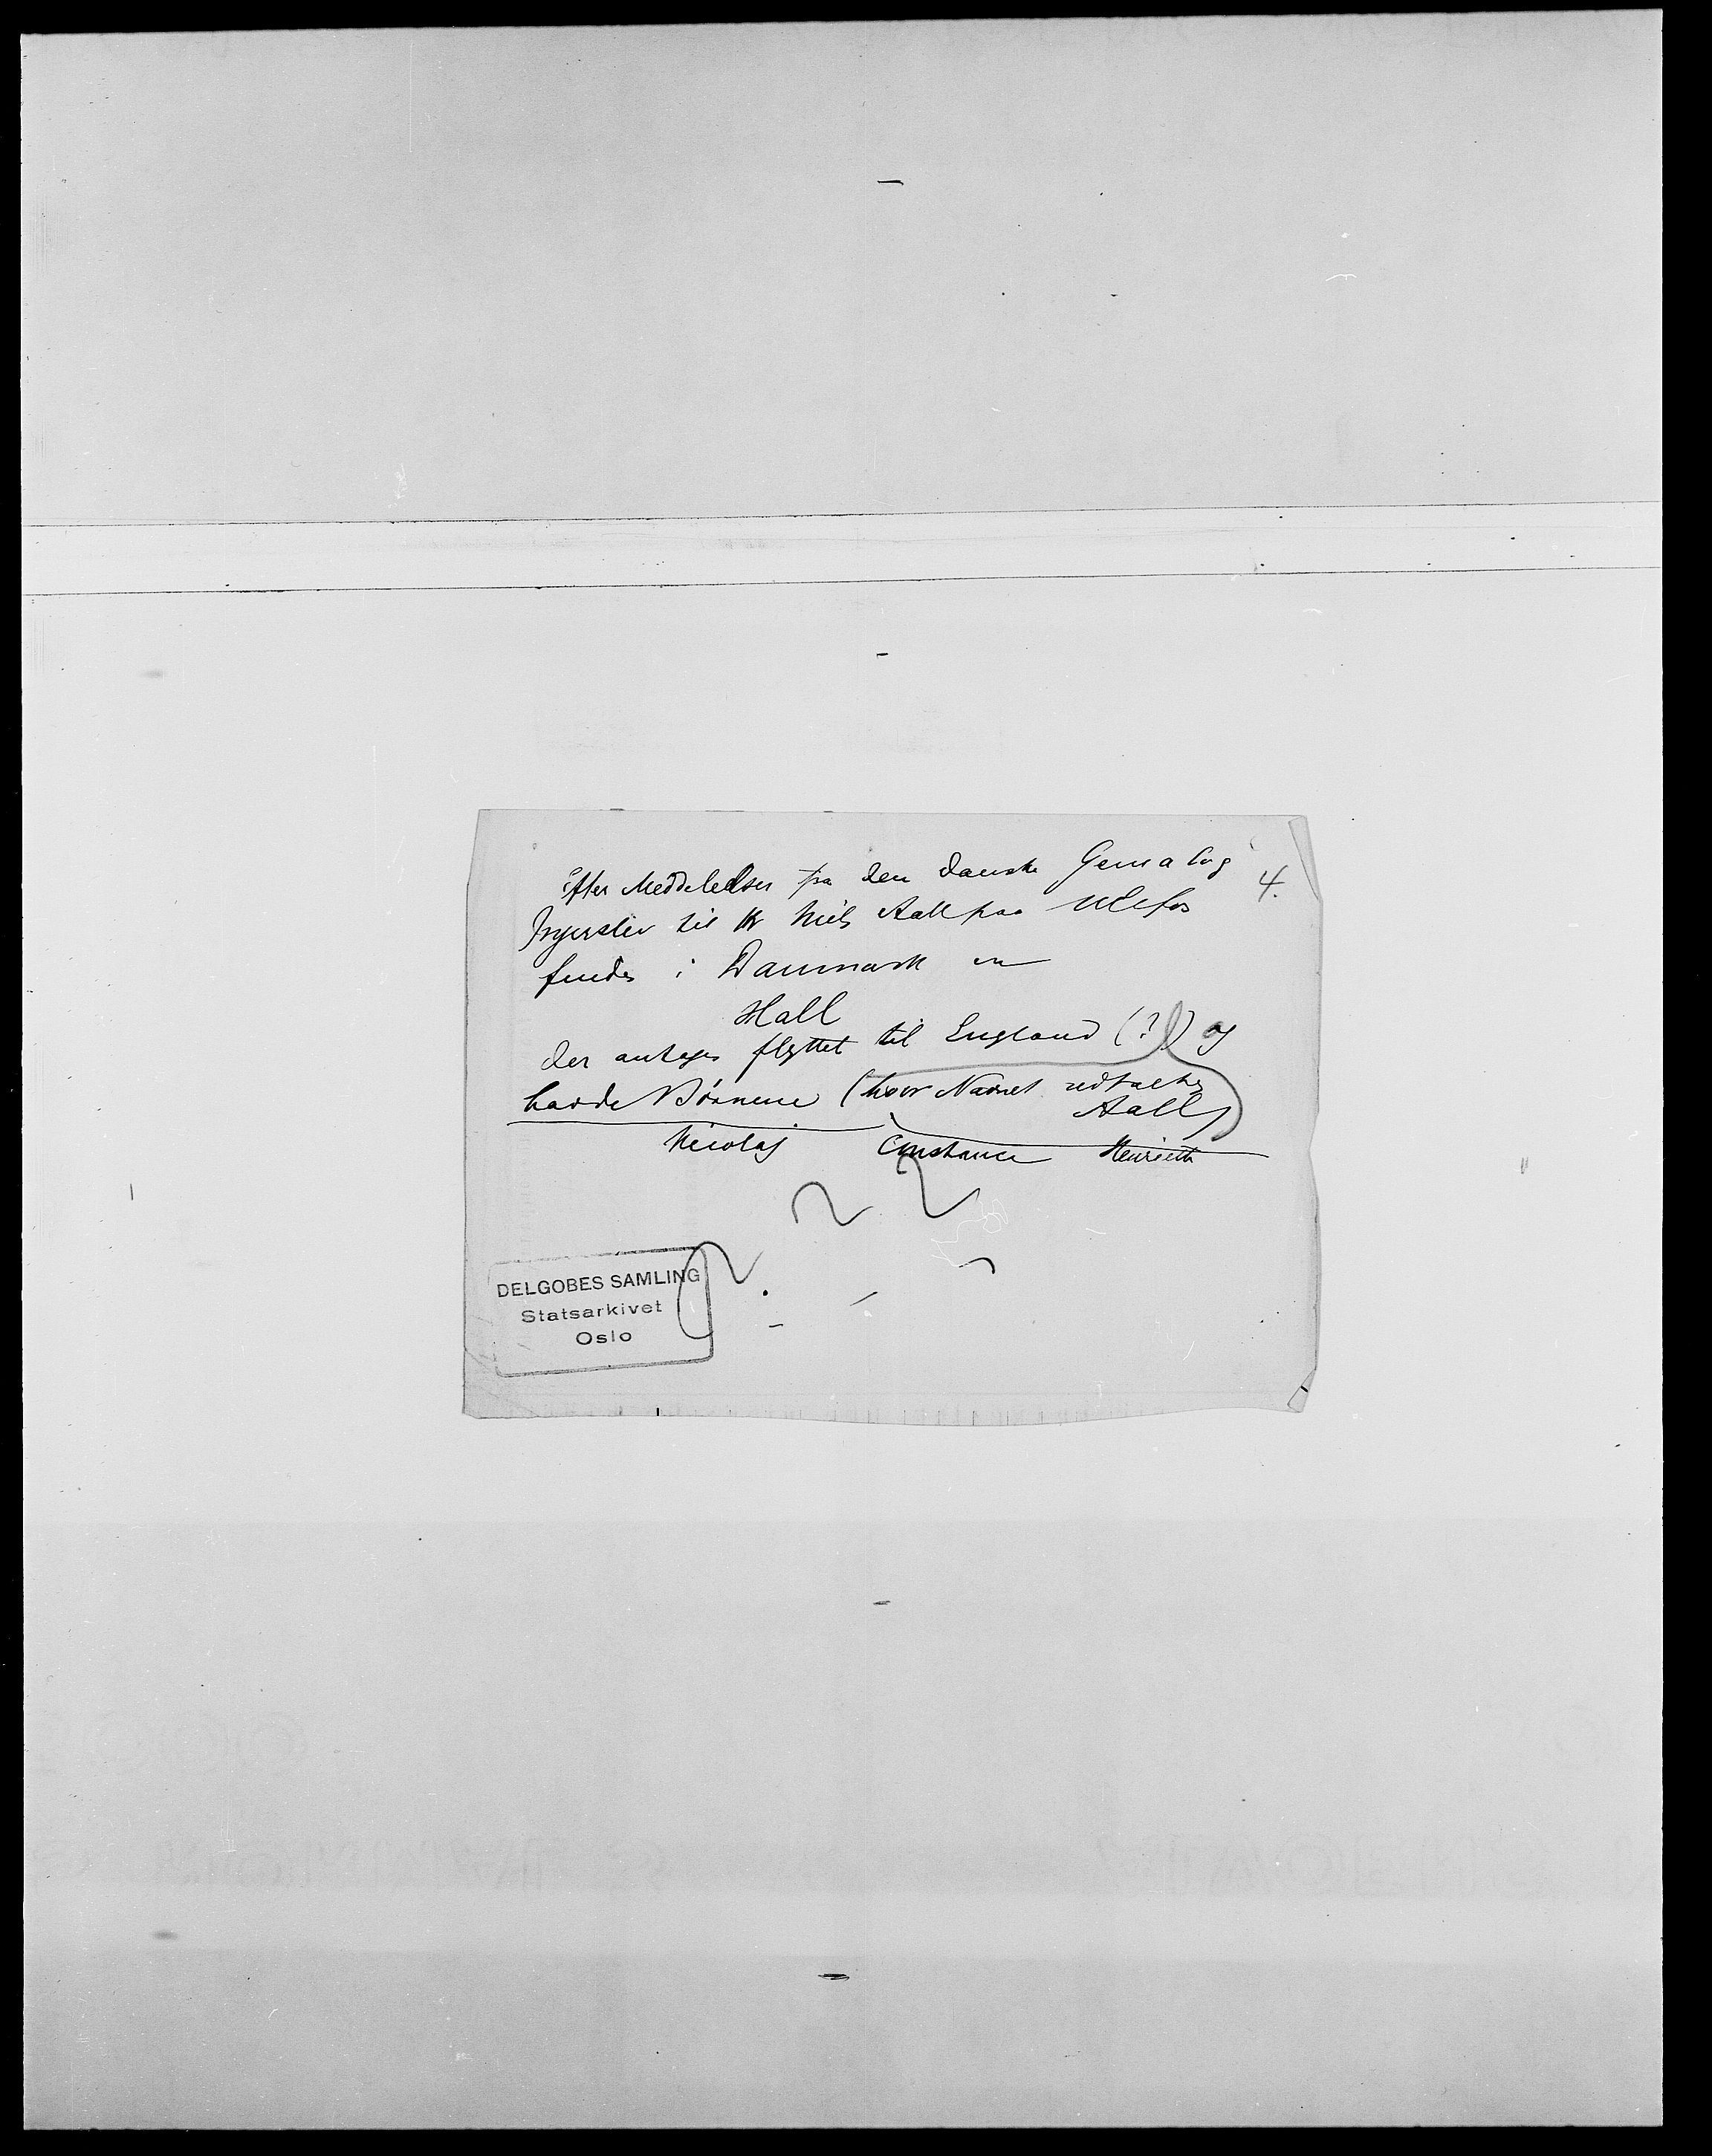 Efter Meddelelser fra den danske Genealog
4.
Ingerslev til Hr Niels Aall paa Ulefos
findes i Danmark en
Hall
der antages flyttet til England (?) og
havde Börnene (hvor Navnet udtaltes
Aall)
Nicolaj Constance Henriette
DELGOBES SAMLING
Statsarkivet
Oslo